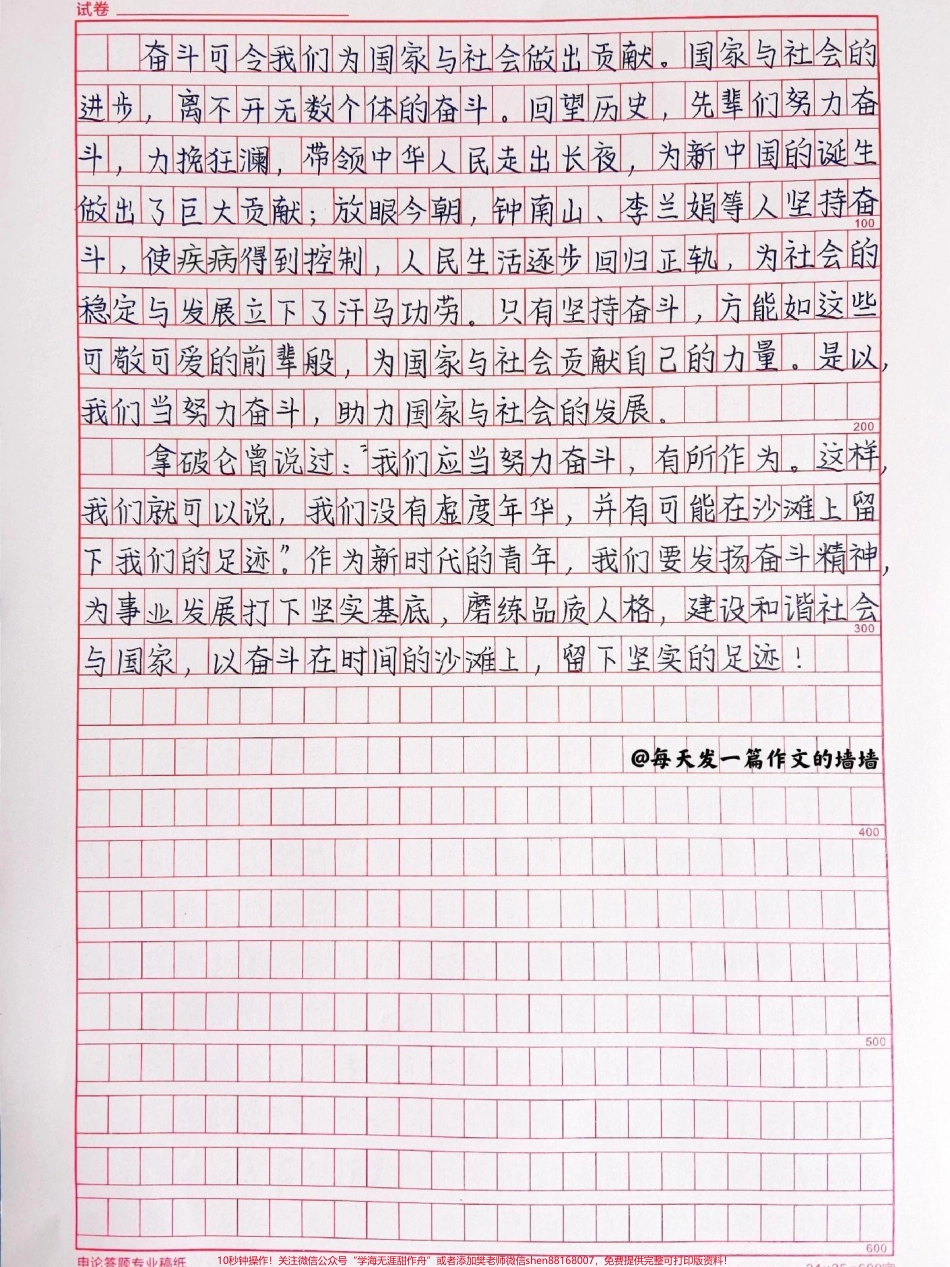 试卷
奋斗可令我们为国家与社会做出贡献。国家与社会的
进步，离不开无数个体的奋斗。回望历史，先辈们努力奋
斗，力挽狂澜，带领中华人民走出长夜，为新中国的诞生
做出了巨大贡献；放眼今朝，钟南山、李兰娟等人坚持奋
100
斗，使疾病得到控制，人民生活逐步回归正轨，为社会的
稳定与发展立下了汗马功劳。只有坚持奋斗，方能如这些
可敬可爱的前辈般，为国家与社会贡献自己的力量。是以，
我们当努力奋斗，助力国家与社会的发展。
200
拿破仑曾说过：“我们应当努力奋斗，有所作为。这样，
我们就可以说，我们没有虚度年华，并有可能在沙滩上留
下我们的足迹”。作为新时代的青年，我们要发扬奋斗精神，
为事业发展打下坚实基底，磨练品质人格，建设和谐社会
300
与国家，以奋斗在时间的沙滩上，留下坚实的足迹！
@每天发一篇作文的墙墙
400
500
600
申论答题专业稿纸
10秒钟操作！关注微信公众号“学海无涯甜作舟”或者添加樊老师微信shen88168007，免费提供完整可打印版资料！